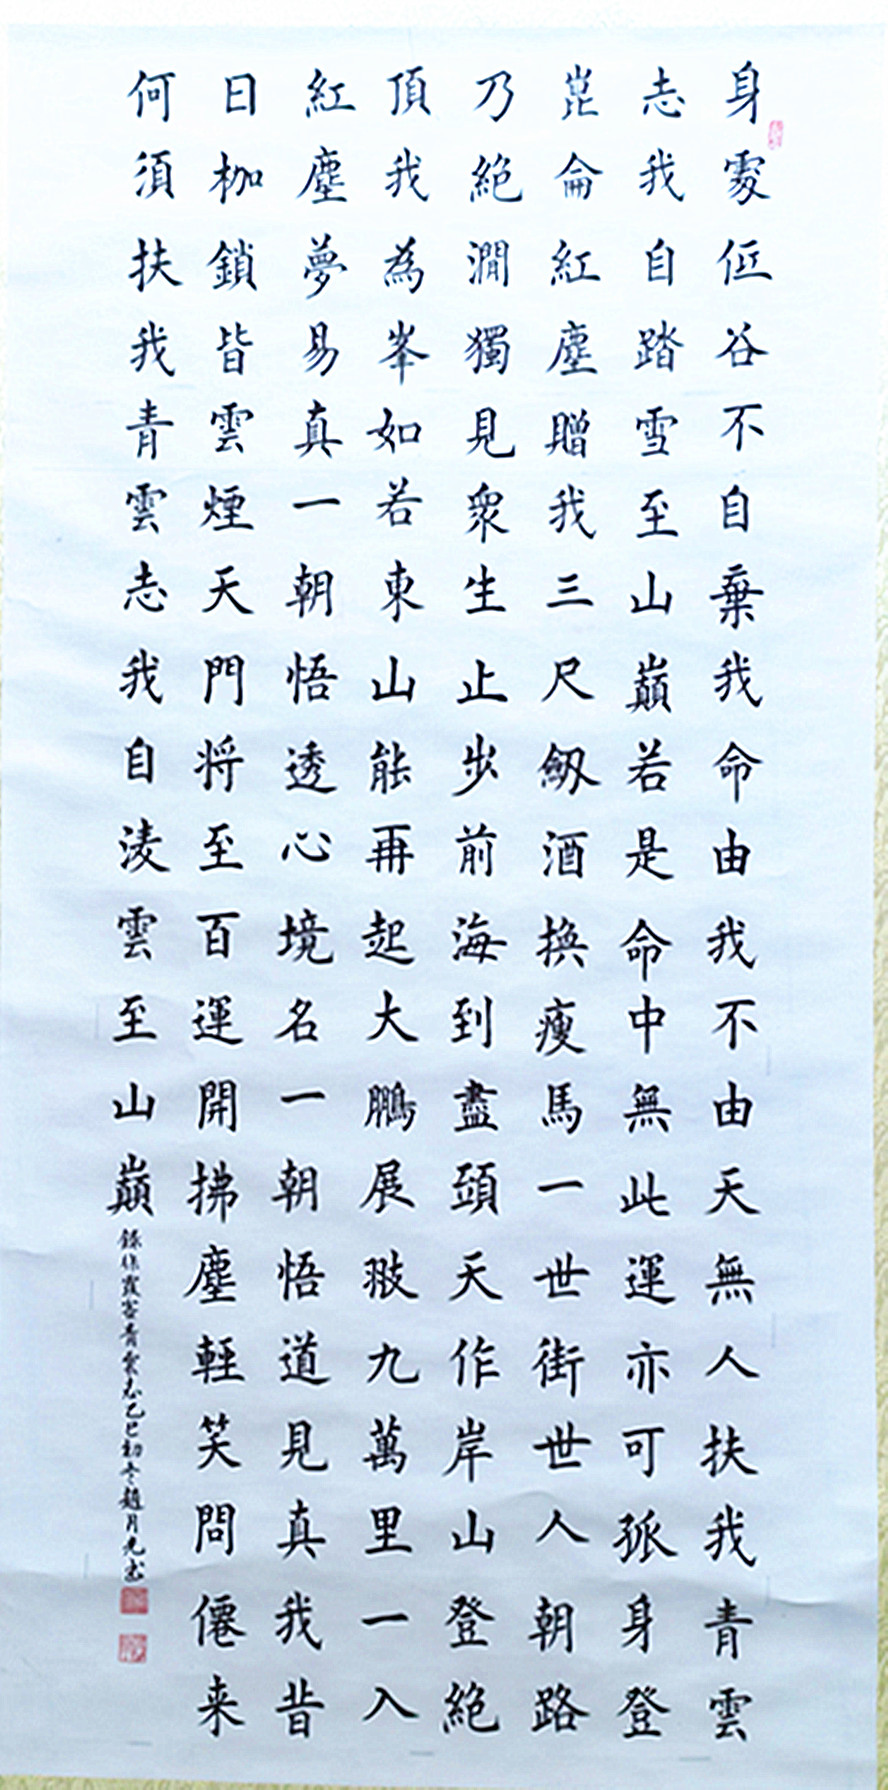 身處低谷不自棄我命由我不由天無人扶我青雲
志我自踏雪至山巔若是命中無此運亦可孤身登
崑侖紅塵贈我三尺劒酒換瘦馬一世街世人朝路
乃絕澗獨見衆生止步前海到盡頭天作岸山登絕
頂我為峯如若東山能再起大鵬展翅九萬里一入
紅塵夢易真一朝悟透心境名一朝悟道見真我昔
日枷鎖皆雲煙天門将至百運開拂塵輕笑問僊来
何須扶我青雲志我自淩雲至山巔
錄作霞客青雲志乙巳初冬趙月光書